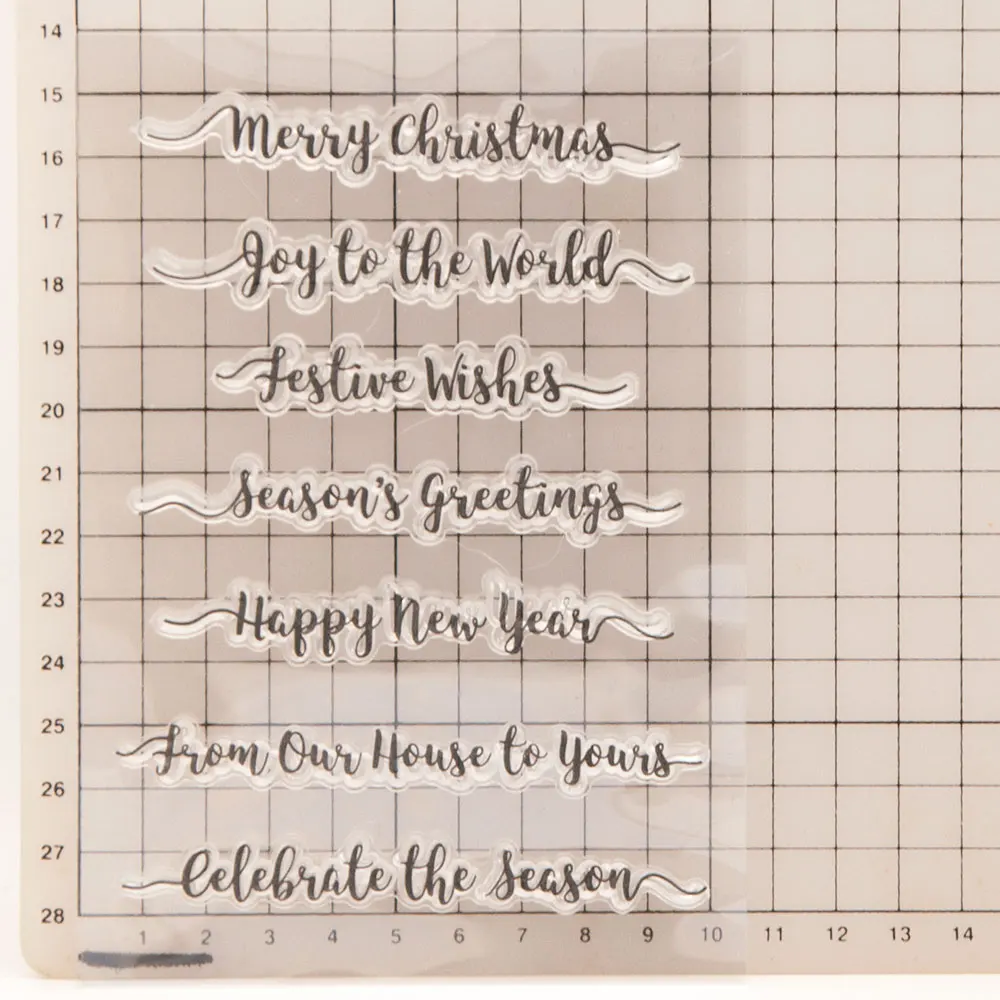 14
15
Merry Christmas
16
17
Joy to the World
18
19
Festive Wishes
20
21
Season's Greetings
22
23
Happy New Year
24
25
From Our House to Yours
26
27
Celebrate the Season
28
1 2 3 4 5 6 7 8 9 10 11 12 13 14